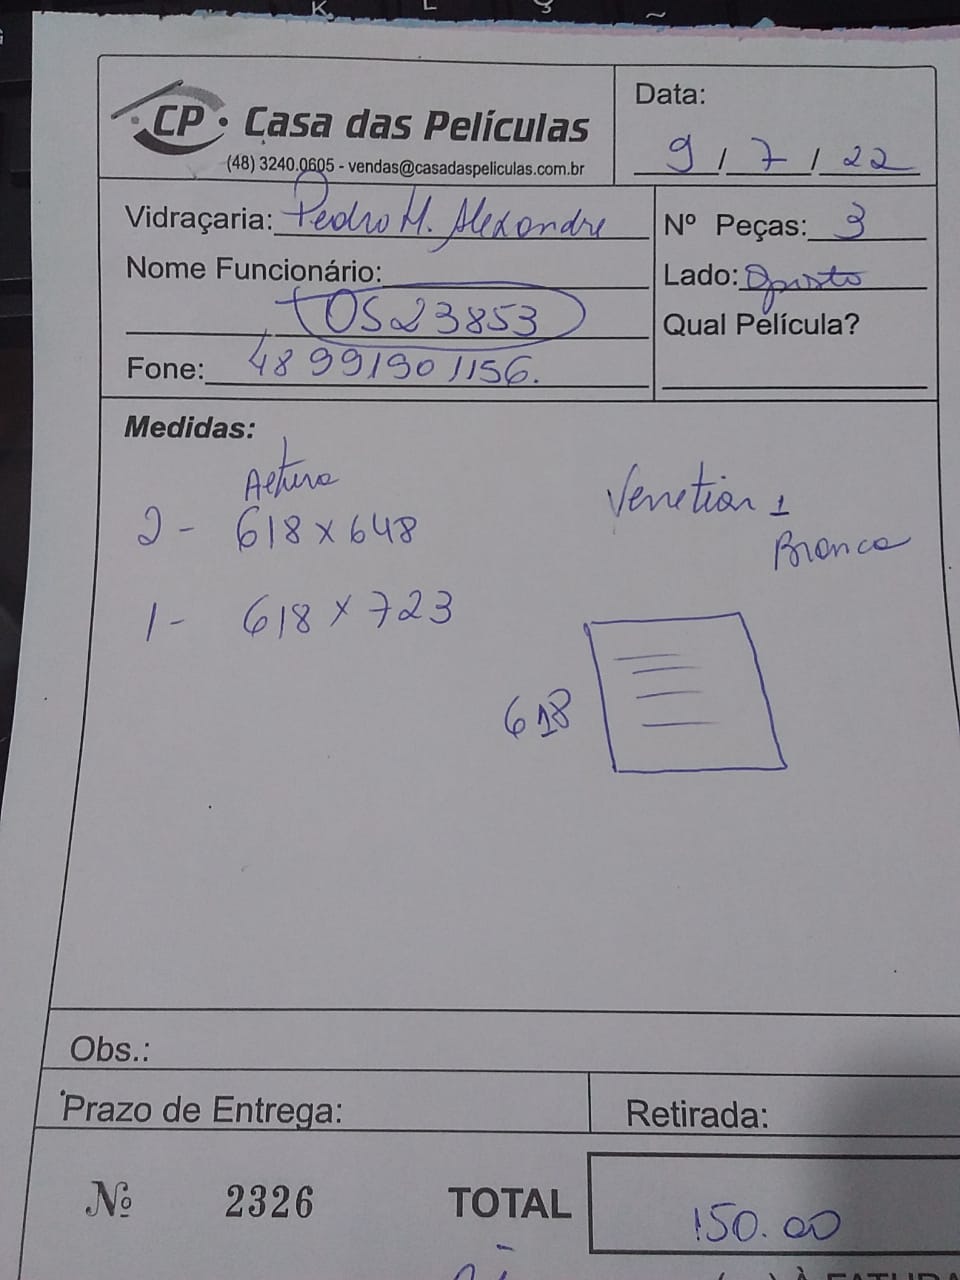 CP Casa das Películas
(48) 3240.0605 - vendas@casadaspeliculas.com.br
Data:
9 / 7 / 22
Vidraçaria: Pedro M. Alexandre
Nome Funcionário:
OS 23853
Fone: 48 991901156.
Nº Peças: 3
Lado: Oposto
Qual Película?
Medidas:
Altura
2 - 618 x 648
1 - 618 x 723
Venetian 1
Branca
618
Obs.:
Prazo de Entrega:
Retirada:
Nº 2326
TOTAL 150.00